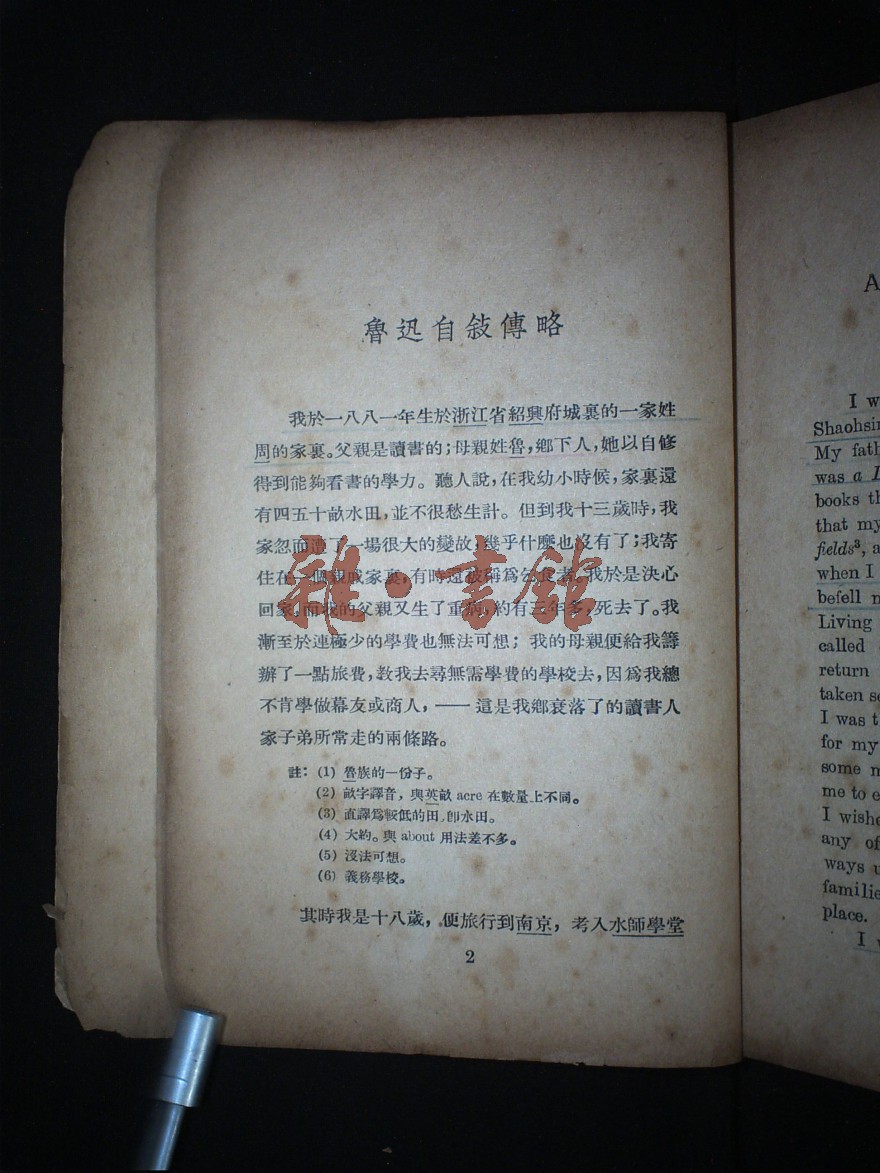 魯迅自敍傳略
我於一八八一年生於浙江省紹興府城裏的一家姓
周的家裏。父親是讀書的；母親姓魯，鄉下人，她以自修
得到能夠看書的學力。聽人說，在我幼小時候，家裏還
有四五十畝水田，並不很愁生計。但到我十三歲時，我
家忽而遭了一場很大的變故，幾乎什麼也沒有了；我寄
住在一個親戚家裏，有時還被稱爲乞食者。我於是決心
回家，而我的父親又生了重病，約有三年多，死去了。我
漸至於連極少的學費也無法可想；我的母親便給我籌
辦了一點旅費，教我去尋無需學費的學校去，因爲我總
不肯學做幕友或商人，——這是我鄉衰落了的讀書人
家子弟所常走的兩條路。
註：(1) 魯族的一份子。
(2) 畝字譯音，與英畝 acre 在數量上不同。
(3) 直譯爲較低的田，卽水田。
(4) 大約。與 about 用法差不多。
(5) 沒法可想。
(6) 義務學校。
其時我是十八歲，便旅行到南京，考入水師學堂
2
雜·書館
A
I w
Shaohsin
My fath
was a L
books th
that my
fields³, a
when I
befell m
Living
called
return
taken se
I was t
for my
some m
me to e
I wishe
any of
ways u
familie
place.
I w